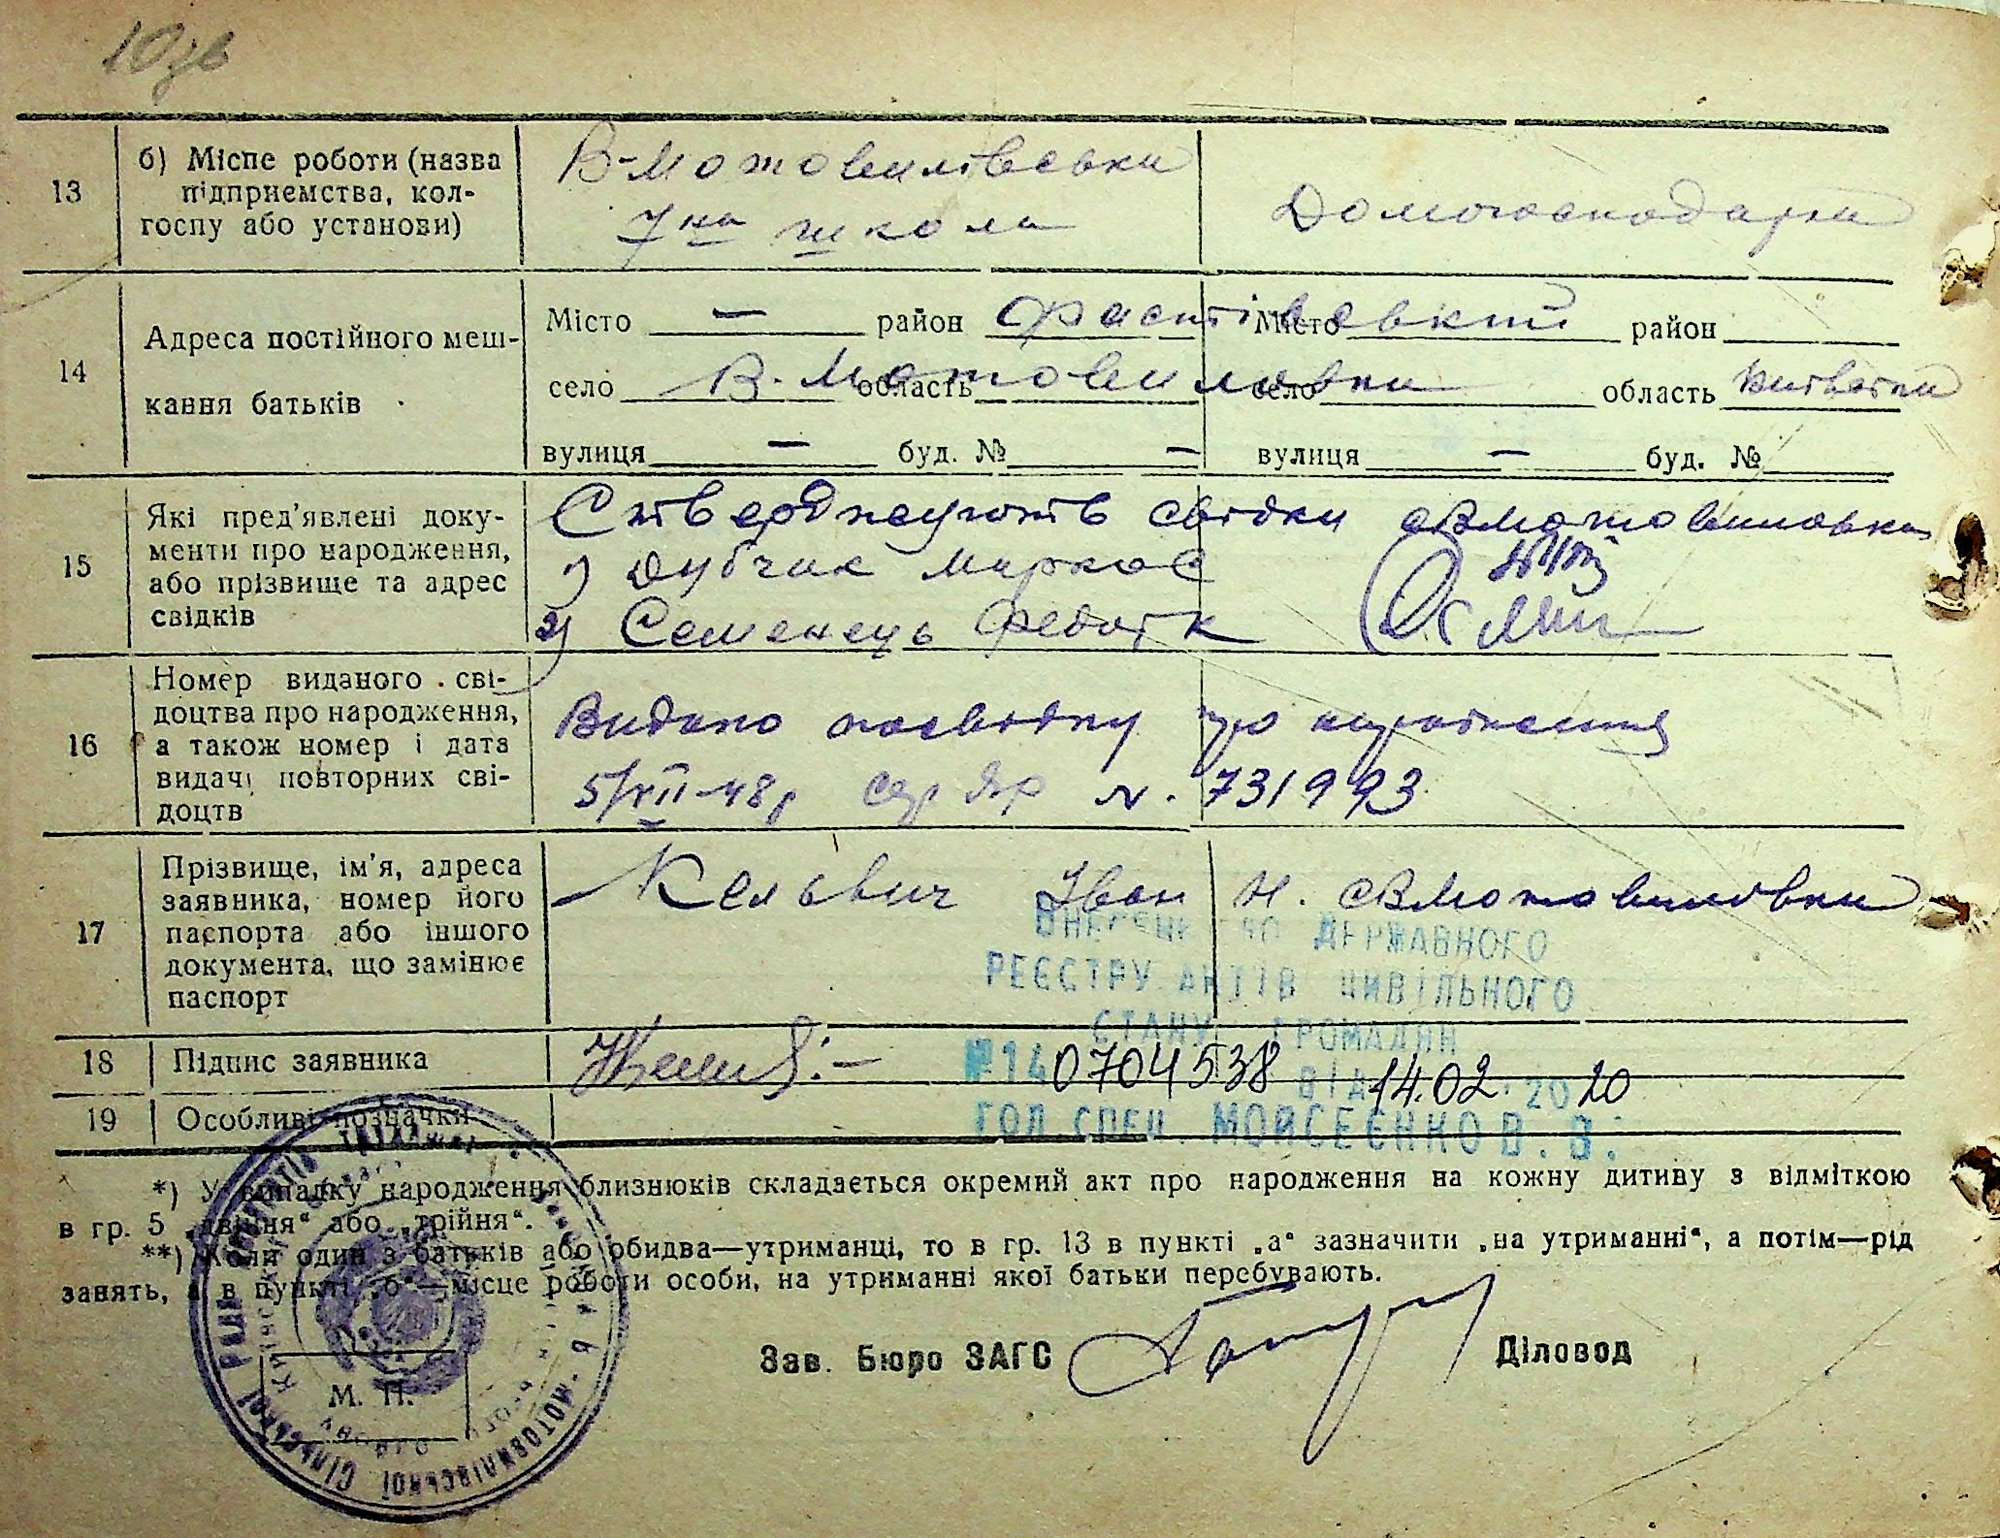 10зв
13
б) Місце роботи (назва
підприємства, кол-
госпу або установи)
В-Мотовилівська
7на школа
Домогосподарка
14
Адреса постійного меш-
кання батьків
Місто — район Фастівський Місто район
село В. Мотовиловка область село область Київська
вулиця — буд. № — вулиця — буд. №
15
Які пред'явлені доку-
менти про народження,
або прізвище та адрес
свідків
Стверджують свідки с В Мотовиловка
1) Дубчак Марко С
2) Семенець Федот К
16
Номер виданого сві-
доцтва про народження,
а також номер і дата
видачі повторних сві-
доцтв
Видано посвідку про народження
5/VII-48р N. 731993
17
Прізвище, ім'я, адреса
заявника, номер його
паспорта або іншого
документа, що замінює
паспорт
Кельвич Іван Н. с В Мотовиловка
ВНЕСЕНЕ ДО ДЕРЖАВНОГО
РЕЄСТРУ АКТІВ ЦИВІЛЬНОГО
СТАНУ ГРОМАДЯН
18
Підпис заявника
№140704538 ВІД 14.02.2020
19
Особливі позначки
ГОЛ.СПЕЦ. МОЙСЕЄНКО В.В.
*) У випадку народження близнюків складається окремий акт про народження на кожну дитину з відміткою
в гр. 5 „двійня“ або „трійня“.
**) Коли один з батьків або обидва—утриманці, то в гр. 13 в пункті „а“ зазначити „на утриманні“, а потім—рід
занять, а в пункті „б“—місце роботи особи, на утриманні якої батьки перебувають.
Зав. Бюро ЗАГС
Діловод
М. П.
МОТОВИЛІВСЬКОЇ СІЛЬСЬКОЇ РАДИ